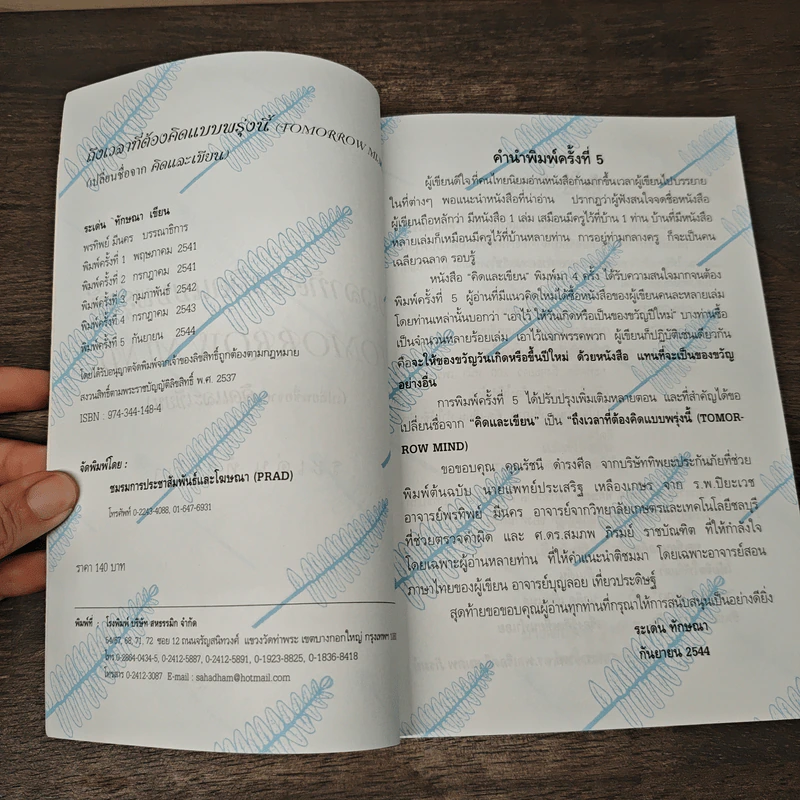 ถึงเวลาที่ต้องคิดแบบพรุ่งนี้ (TOMORROW MIND
(เปลี่ยนชื่อจาก คิดและเขียน)
ระเด่น ทักษณา เขียน
พรทิพย์ มีนคร บรรณาธิการ
พิมพ์ครั้งที่ 1 พฤษภาคม 2541
พิมพ์ครั้งที่ 2 กรกฎาคม 2541
พิมพ์ครั้งที่ 3 กุมภาพันธ์ 2542
พิมพ์ครั้งที่ 4 กรกฎาคม 2543
พิมพ์ครั้งที่ 5 กันยายน 2544
โดยได้รับอนุญาตจัดพิมพ์จากเจ้าของลิขสิทธิ์ถูกต้องตามกฎหมาย
สงวนลิขสิทธิ์ตามพระราชบัญญัติลิขสิทธิ์ พ.ศ. 2537
ISBN : 974-344-148-4
จัดพิมพ์โดย :
ชมรมการประชาสัมพันธ์และโฆษณา (PRAD)
โทรศัพท์ 0-2243-4088, 01-647-6931
ราคา 140 บาท
พิมพ์ที่ : โรงพิมพ์ บริษัท สหธรรมิก จำกัด
54/67, 68, 71, 72 ซอย 12 ถนนจรัญสนิทวงศ์ แขวงวัดท่าพระ เขตบางกอกใหญ่ กรุงเทพฯ
โทร 0-2864-0434-5, 0-2412-5887, 0-2412-5891, 0-1923-8825, 0-1836-8418
โทรสาร 0-2412-3087 E-mail : sahadham@hotmail.com
คำนำพิมพ์ครั้งที่ 5
ผู้เขียนดีใจที่คนไทยนิยมอ่านหนังสือกันมากขึ้นเวลาผู้เขียนไปบรรยาย
ในที่ต่างๆ พอแนะนำหนังสือที่น่าอ่าน ปรากฏว่าผู้ฟังสนใจจดชื่อหนังสือ
ผู้เขียนถือหลักว่า มีหนังสือ 1 เล่ม เสมือนมีครูไว้ที่บ้าน 1 ท่าน บ้านที่มีหนังสือ
หลายเล่มก็เหมือนมีครูไว้ที่บ้านหลายท่าน การอยู่ท่ามกลางครู ก็จะเป็นคน
เฉลียวฉลาด รอบรู้
หนังสือ "คิดและเขียน" พิมพ์มา 4 ครั้ง ได้รับความสนใจมากจนต้อง
พิมพ์ครั้งที่ 5 ผู้อ่านที่มีแนวคิดใหม่ได้ซื้อหนังสือของผู้เขียนคนละหลายเล่ม
โดยท่านเหล่านั้นบอกว่า "เอาไว้ให้วันเกิดหรือเป็นของขวัญปีใหม่" บางท่านซื้อ
เป็นจำนวนหลายร้อยเล่ม เอาไว้แจกพรรคพวก ผู้เขียนก็ปฏิบัติเช่นเดียวกัน
คือจะให้ของขวัญวันเกิดหรือขึ้นปีใหม่ ด้วยหนังสือ แทนที่จะเป็นของขวัญ
อย่างอื่น
การพิมพ์ครั้งที่ 5 ได้ปรับปรุงเพิ่มเติมหลายตอน และที่สำคัญได้ขอ
เปลี่ยนชื่อจาก "คิดและเขียน" เป็น "ถึงเวลาที่ต้องคิดแบบพรุ่งนี้ (TOMOR-
ROW MIND)
ขอขอบคุณ คุณรัชนี ดำรงศีล จากบริษัททิพยะประกันภัยที่ช่วย
พิมพ์ต้นฉบับ นายแพทย์ประเสริฐ เหลืองเกษร จาก ร.พ.ปิยะเวช
อาจารย์พรทิพย์ มีนคร อาจารย์จากวิทยาลัยเกษตรและเทคโนโลยีชลบุรี
ที่ช่วยตรวจคำผิด และ ศ.ดร.สมภพ ภิรมย์ ราชบัณฑิต ที่ให้กำลังใจ
โดยเฉพาะผู้อ่านหลายท่าน ที่ให้คำแนะนำติชมมา โดยเฉพาะอาจารย์สอน
ภาษาไทยของผู้เขียน อาจารย์บุญลอย เที่ยวประดิษฐ์
สุดท้ายขอขอบคุณผู้อ่านทุกท่านที่กรุณาให้การสนับสนุนเป็นอย่างดียิ่ง
ระเด่น ทักษณา
กันยายน 2544